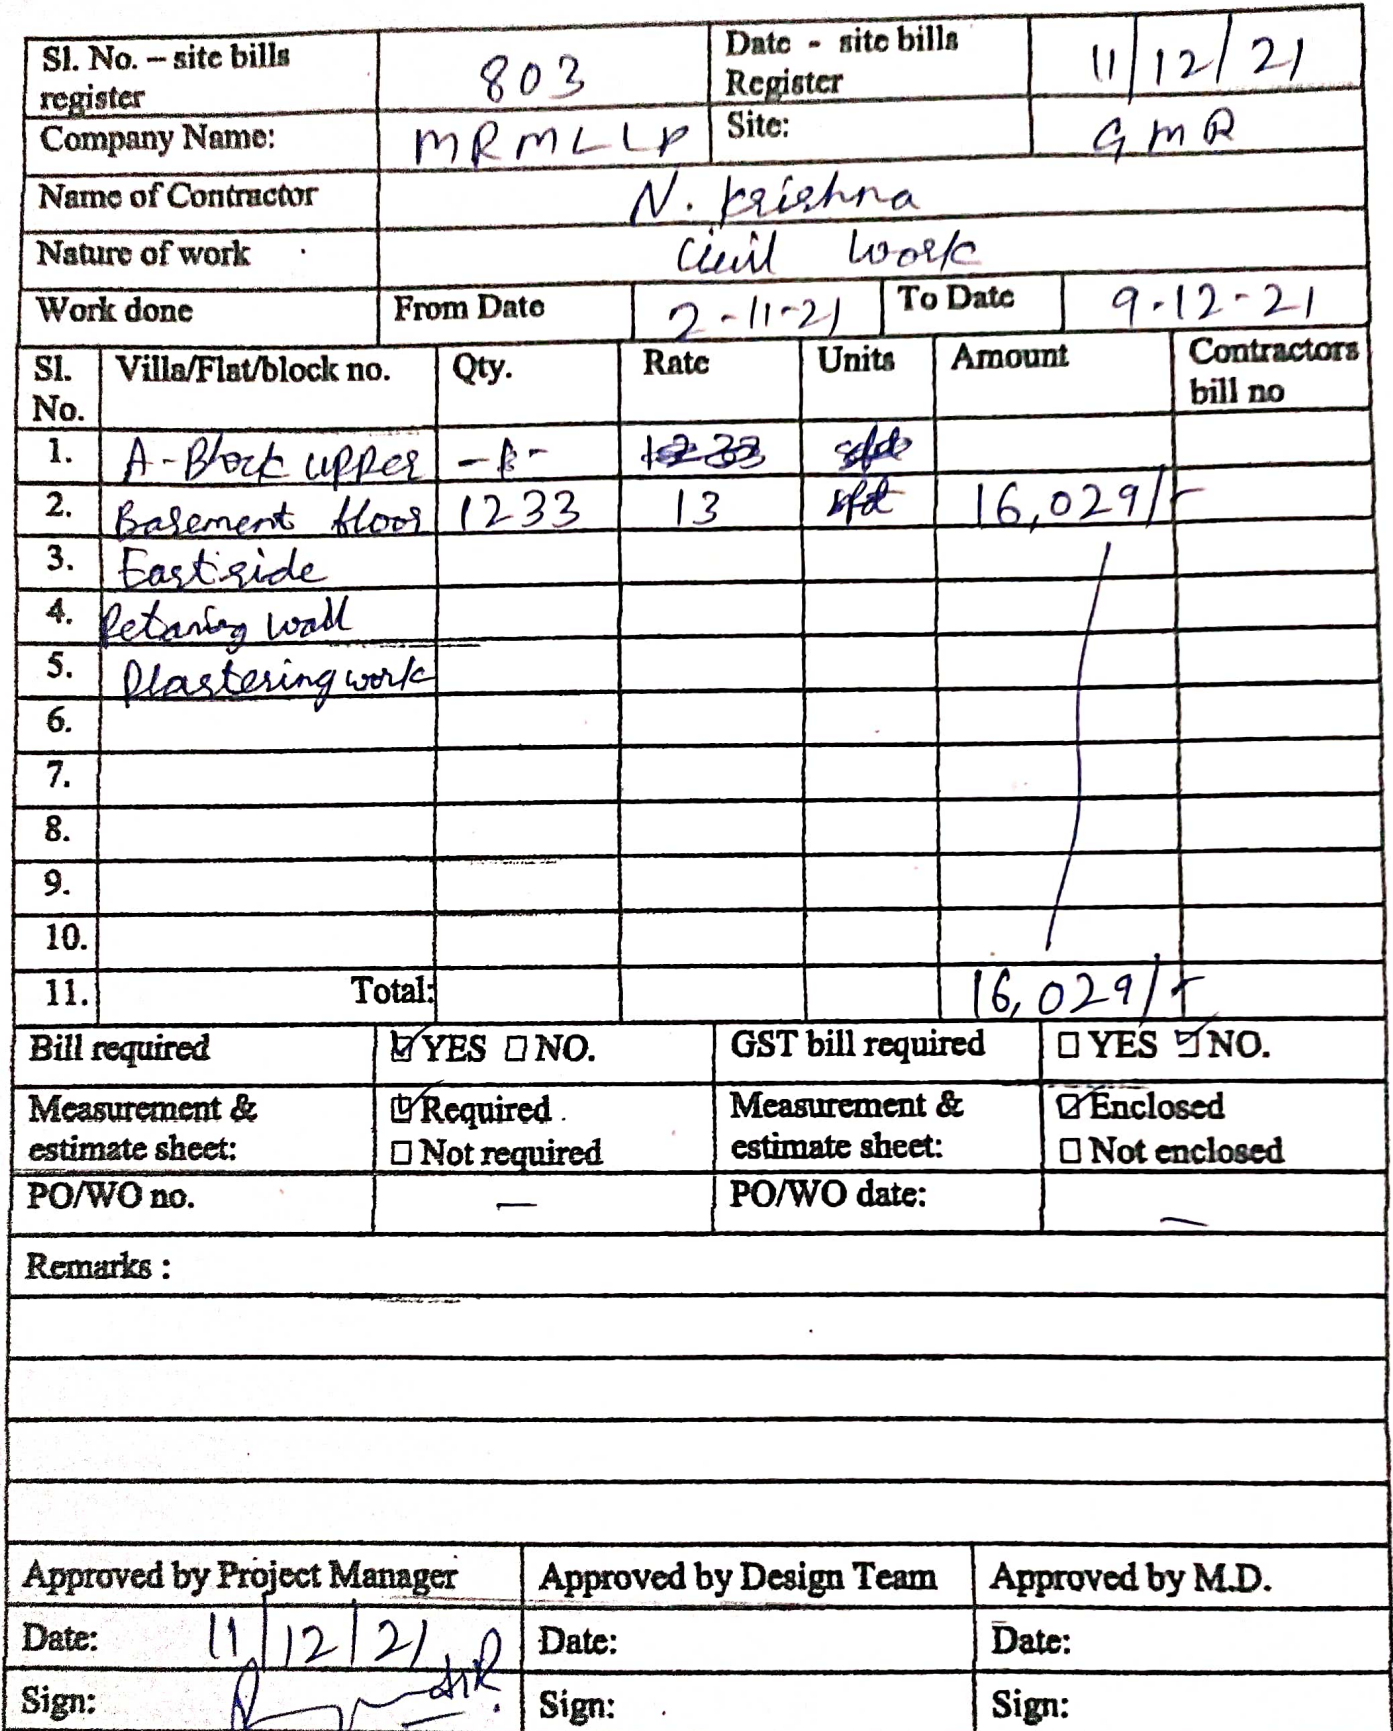 Sl. No. – site bills register 803 Date - site bills Register 11/12/21
Company Name: MRMLLP Site: GMR
Name of Contractor N. Krishna
Nature of work Civil Work
Work done From Date 2-11-21 To Date 9-12-21
Sl. No. Villa/Flat/block no. Qty. Rate Units Amount Contractors bill no
1. A-Block upper
2. Basement floor 1233 13 sft 16,029/-
3. East side
4. Retaring wall
5. Plastering work
6.
7.
8.
9.
10.
11. Total: 16,029/-
Bill required YES NO. GST bill required YES NO.
Measurement & estimate sheet: Required Not required Measurement & estimate sheet: Enclosed Not enclosed
PO/WO no. — PO/WO date: —
Remarks :
Approved by Project Manager Approved by Design Team Approved by M.D.
Date: 11/12/21 Date: Date:
Sign: Sign: Sign: